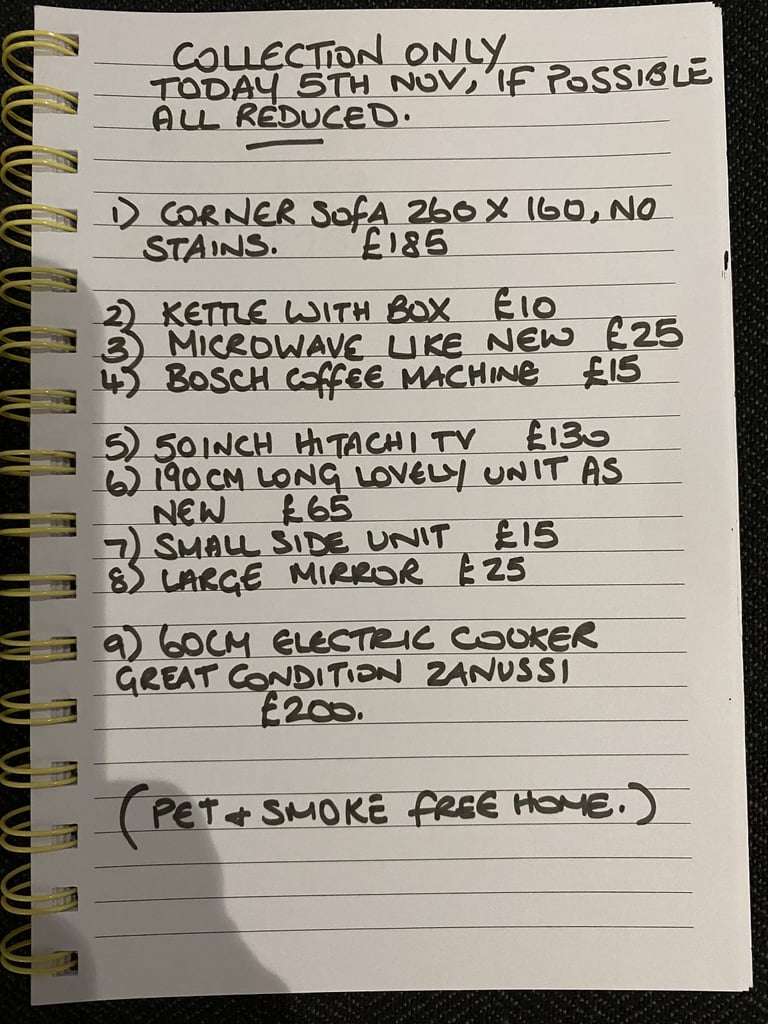 COLLECTION ONLY
TODAY 5TH NOV, IF POSSIBLE
ALL REDUCED.
1) CORNER SOFA 260 X 160, NO
STAINS. £185
2) KETTLE WITH BOX £10
3) MICROWAVE LIKE NEW £25
4) BOSCH COFFEE MACHINE £15
5) 50INCH HITACHI TV £130
6) 190CM LONG LOVELY UNIT AS
NEW £65
7) SMALL SIDE UNIT £15
8) LARGE MIRROR £25
9) 60CM ELECTRIC COOKER
GREAT CONDITION ZANUSSI
£200.
(PET + SMOKE FREE HOME.)